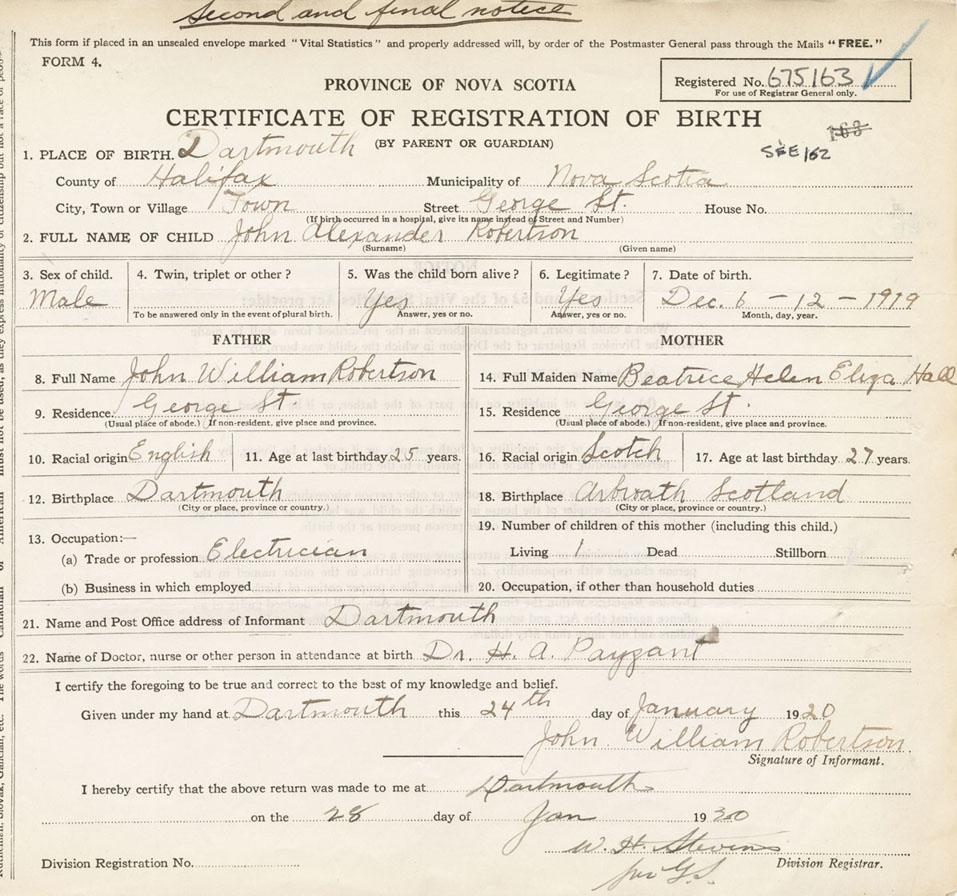 Second and final notice
This form if placed in an unsealed envelope marked "Vital Statistics" and properly addressed will, by order of the Postmaster General pass through the Mails "FREE."
FORM 4.
PROVINCE OF NOVA SCOTIA
Registered No. 675163
For use of Registrar General only.
CERTIFICATE OF REGISTRATION OF BIRTH
163
(BY PARENT OR GUARDIAN)
SEE 162
1. PLACE OF BIRTH. Dartmouth
County of Halifax Municipality of Nova Scotia
City, Town or Village Town Street George St. House No.
(If birth occurred in a hospital, give its name instead of Street and Number)
2. FULL NAME OF CHILD John Alexander Robertson
(Surname) (Given name)
3. Sex of child. 4. Twin, triplet or other? 5. Was the child born alive? 6. Legitimate? 7. Date of birth.
Male Yes Yes Dec. 6 - 12 - 1919
To be answered only in the event of plural birth. Answer, yes or no. Answer, yes or no. Month, day, year.
FATHER MOTHER
8. Full Name John William Robertson 14. Full Maiden Name Beatrice Helen Eliza Hall
9. Residence. George St. 15. Residence George St.
(Usual place of abode.) If non-resident, give place and province. (Usual place of abode.) If non-resident, give place and province.
10. Racial origin English 11. Age at last birthday 25 years. 16. Racial origin Scotch 17. Age at last birthday 27 years.
12. Birthplace Dartmouth 18. Birthplace Arbroath Scotland
(City or place, province or country.) (City or place, province or country.)
13. Occupation:— 19. Number of children of this mother (including this child.)
(a) Trade or profession Electrician Living 1 Dead Stillborn
(b) Business in which employed 20. Occupation, if other than household duties
21. Name and Post Office address of Informant Dartmouth
22. Name of Doctor, nurse or other person in attendance at birth Dr. H. A. Payzant
I certify the foregoing to be true and correct to the best of my knowledge and belief.
Given under my hand at Dartmouth this 24th day of January 1920
John William Robertson
Signature of Informant.
I hereby certify that the above return was made to me at Dartmouth
on the 28 day of Jan 19
W. H. Stevens
Division Registration No. Division Registrar.